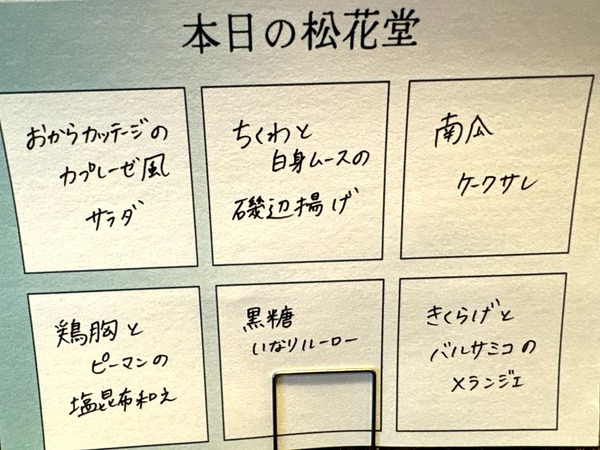 本日の松花堂
おからカッテージの
カプレーゼ風
サラダ
ちくわと
白身ムースの
磯辺揚げ
南瓜
ケークサレ
鶏胸と
ピーマンの
塩昆布和え
黒糖
いなりルーロー
きくらげと
バルサミコの
メランジェ